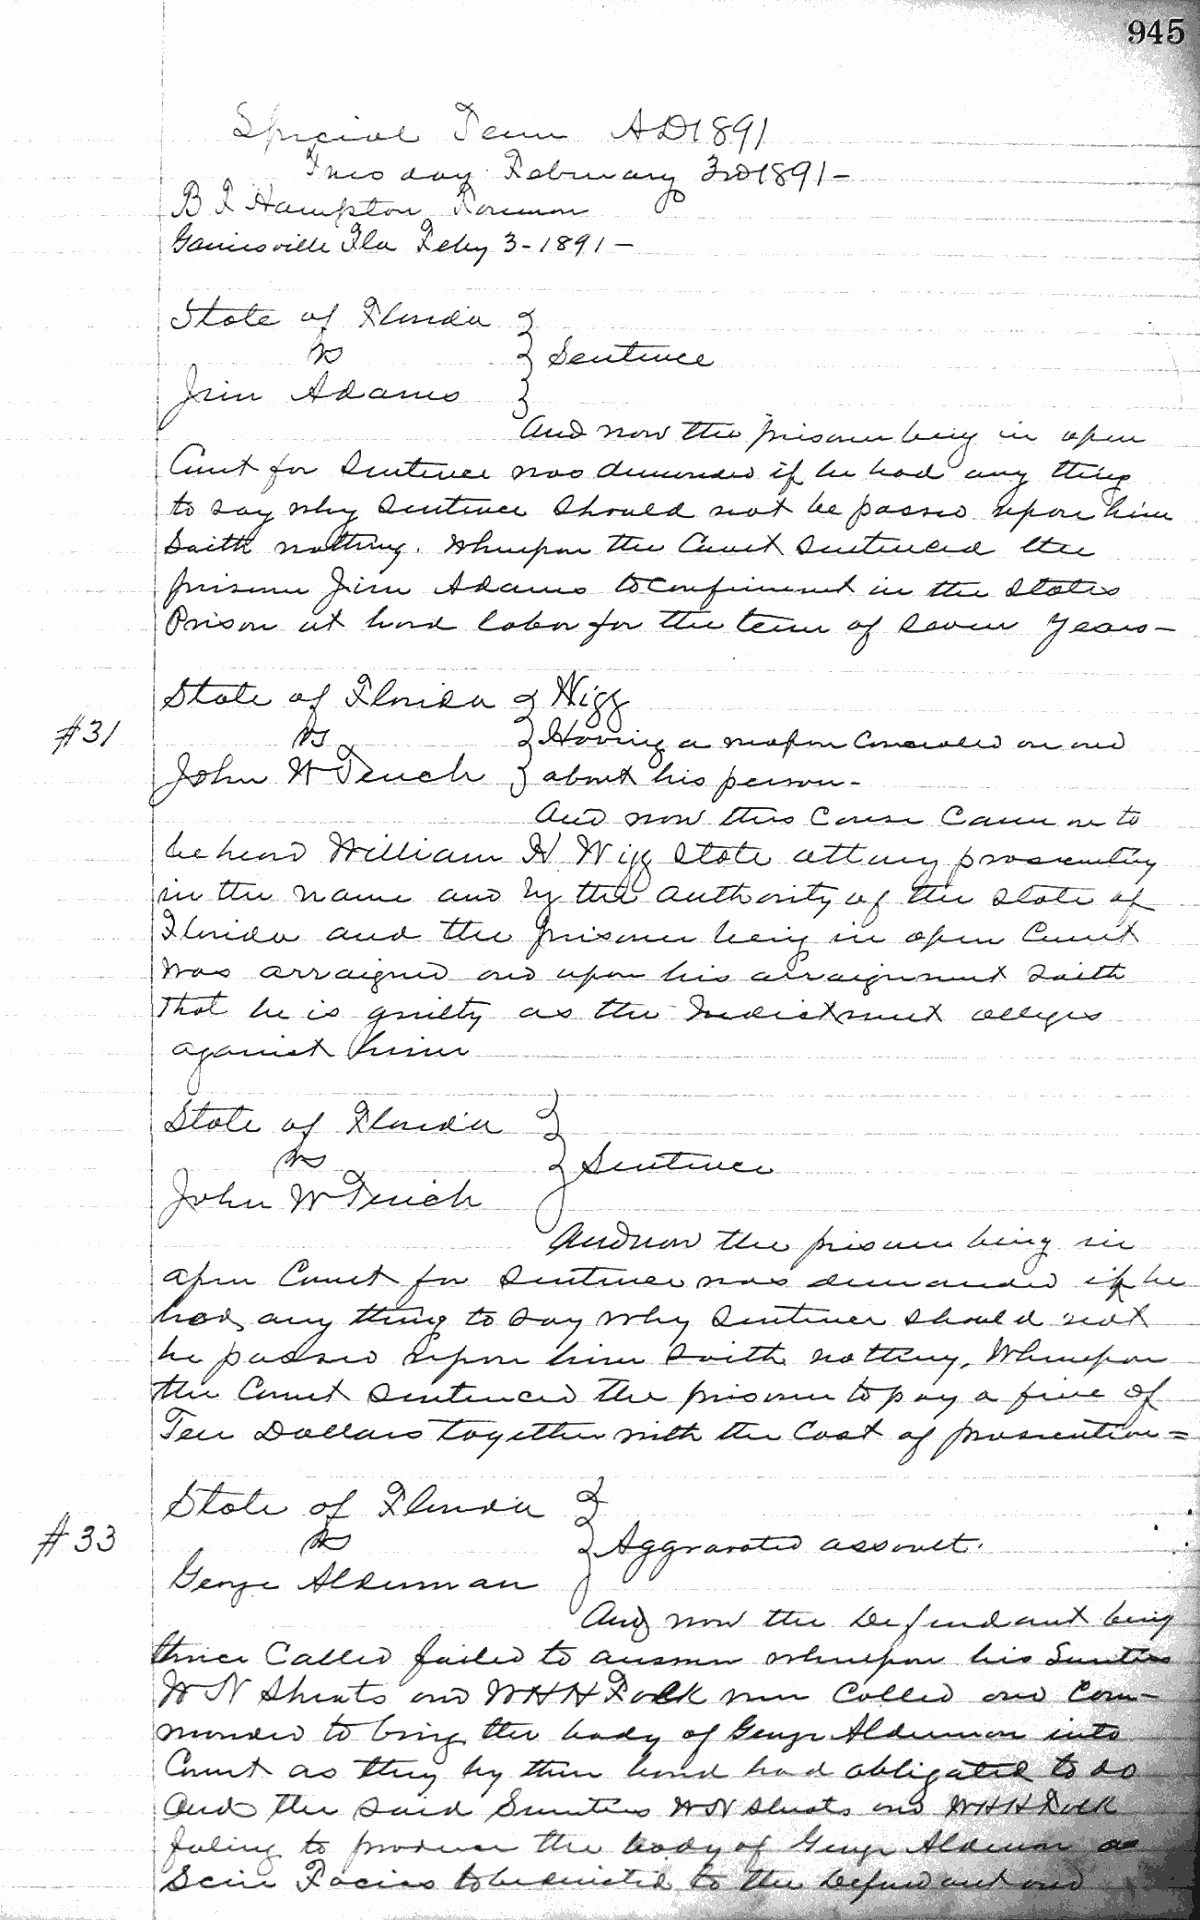 945
Special Term AD1891
Tuesday February 3rd 1891-
B F Hampton Foreman
Gainesville Fla Feby 3-1891-
State of Florida
vs } Sentence
Jim Adams
And now the prisoner being in open
Court for Sentence was demanded if he had any thing
to say why Sentence Should not be passed upon him
Saith nothing. Whereupon the Court Sentenced the
prisoner Jim Adams to Confinement in the States
Prison at hard labor for the term of Seven Years-
State of Florida } Wigg
#31 vs } Having a weapon Concealed on and
John W Tench } about his person-
And now this Cause Came on to
be heard William H Wigg State attorney prosecuting
in the name and by the authority of the State of
Florida and the prisoner being in open Court
was arraigned and upon his arraignment Saith
That he is guilty as the Indictment alleges
against him
State of Florida
vs } Sentence
John W Tench
And now the prisoner being in
open Court for Sentence was demanded if he
had any thing to say why Sentence should not
be passed upon him Saith nothing, Whereupon
the Court Sentenced The prisoner to pay a fine of
Ten Dollars together with the Cost of prosecution=
State of Florida
#33 vs } Aggravated assault.
George Alderman
And now the Defendant being
thrice Called failed to answer whereupon his Sureties
W N Sheats and W H H Folk were Called and Com-
manded to bring the body of George Alderman into
Court as they by their bond had obligated to do
And the said Sureties W N Sheats and W H H Folk
failing to produce the body of George Alderman a
Scire Facias to be directed to the Defendant and